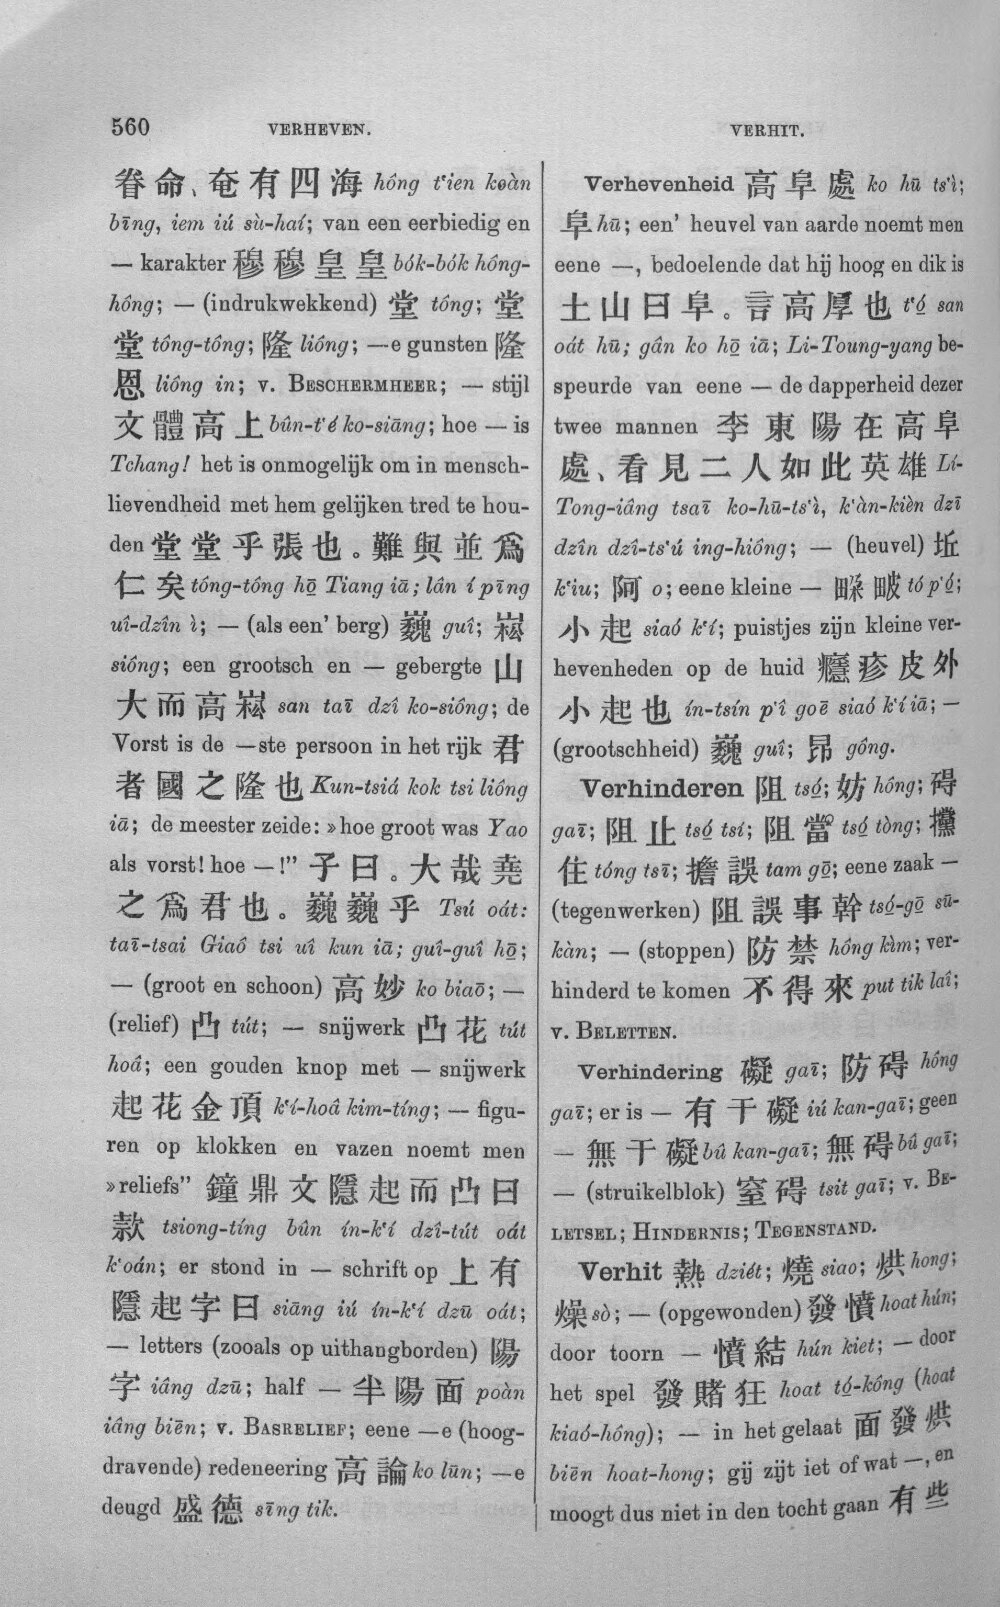 560
VERHEVEN.
VERHIT.
眷命、奄有四海 hông t‘ien koàn
bīng, iem iú sù-haí; van een eerbiedig en
— karakter 穆穆皇皇 bók-bók hông-
hông; — (indrukwekkend) 堂 tông; 堂
堂 tông-tông; 隆 liông; —e gunsten 隆
恩 liông in; v. BESCHERMHEER; — stijl
文體高上 bûn-t‘é ko-siāng; hoe — is
Tchang! het is onmogelijk om in mensch-
lievendheid met hem gelijken tred te hou-
den 堂堂乎張也。難與並爲
仁矣 tông-tông ho̱ Tiang iā; lân í pīng
uî-dzîn ì; — (als een’ berg) 巍 guî; 崧
siông; een grootsch en — gebergte 山
大而高崧 san taī dzî ko-siông; de
Vorst is de —ste persoon in het rijk 君
者國之隆也 Kun-tsiá kok tsi liông
iā; de meester zeide: »hoe groot was Yao
als vorst! hoe —!” 子曰。大哉堯
之爲君也。巍巍乎 Tsú oát:
taī-tsai Giaô tsi uî kun iā; guî-guî hō̱;
— (groot en schoon) 高妙 ko biaō; —
(relief) 凸 tút; — snijwerk 凸花 tút
hoâ; een gouden knop met — snijwerk
起花金頂 k‘í-hoâ kim-tíng; — figu-
ren op klokken en vazen noemt men
»reliefs” 鐘鼎文隱起而凸曰
款 tsiong-tíng bûn ín-k‘í dzî-tút oát
k‘oán; er stond in — schrift op 上有
隱起字曰 siāng iú ín-k‘í dzū oát;
— letters (zooals op uithangborden) 陽
字 iâng dzū; half — 半陽面 poàn
iâng biēn; v. BASRELIEF; eene —e (hoog-
dravende) redeneering 高論 ko lūn; —e
deugd 盛德 sīng tik.
Verhevenheid 高阜處 ko hū ts‘ì;
阜 hū; een’ heuvel van aarde noemt men
eene —, bedoelende dat hij hoog en dik is
土山曰阜。言高厚也 t‘ó̱ san
oát hū; gân ko hō̱ iā; Li-Toung-yang be-
speurde van eene — de dapperheid dezer
twee mannen 李東陽在高阜
處、看見二人如此英雄 Lí-
Tong-iâng tsaī ko-hū-ts‘ì, k‘àn-kièn dzī
dzîn dzî-ts‘ú ing-hiông; — (heuvel) 坵
k‘iu; 阿 o; eene kleine — tó p‘ó̱;
小起 siaó k‘í; puistjes zijn kleine ver-
hevenheden op de huid 癮疹皮外
小起也 ín-tsín p‘î goē siaó k‘í iā; —
(grootschheid) 巍 guî; 昂 gông.
Verhinderen 阻 tsó̱; 妨 hông; 碍
gaī; 阻止 tsó̱ tsí; 阻當 tsó̱ tòng; 攩
住 tóng tsī; 擔誤 tam gō̱; eene zaak —
(tegenwerken) 阻誤事幹 tsó̱-gō̱ sū-
kàn; — (stoppen) 防禁 hông kìm; ver-
hinderd te komen 不得來 put tik laî;
v. BELETTEN.
Verhindering 礙 gaī; 防碍 hông
gaī; er is — 有干礙 iú kan-gaī; geen
— 無干礙 bû kan-gaī; 無碍 bû gaī;
— (struikelblok) 窒碍 tsit gaī; v. BE-
LETSEL; HINDERNIS; TEGENSTAND.
Verhit 熱 dziét; 燒 siao; 烘 hong;
燥 sò; — (opgewonden) 發憤 hoat hún;
door toorn — 憤結 hún kiet; — door
het spel 發賭狂 hoat tó̱-kông (hoat
kiaó-hông); — in het gelaat 面發烘
biēn hoat-hong; gij zijt iet of wat —, en
moogt dus niet in den tocht gaan 有些